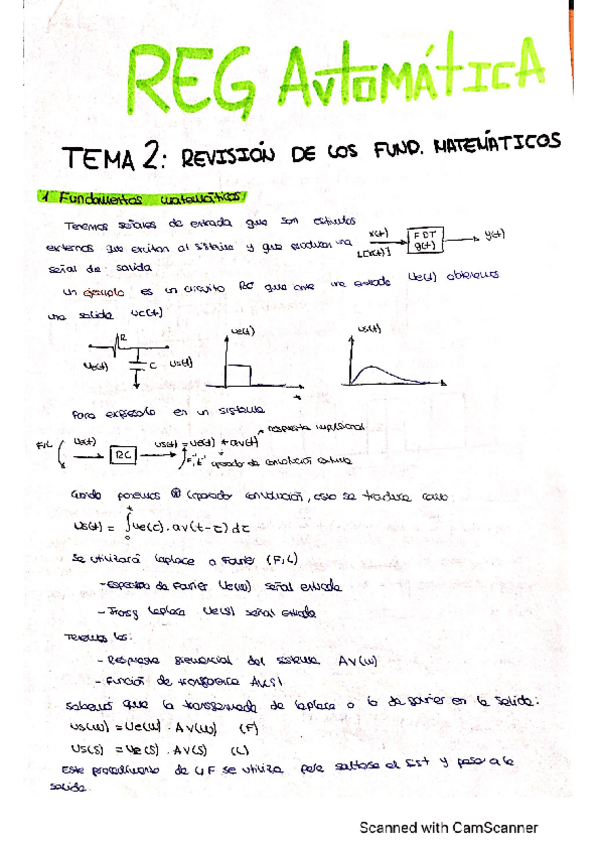 REG AUTOMÁTICA
TEMA 2: REVISIÓN DE LOS FUND. MATEMÁTICOS
1. Fundamentos matemáticos
Tenemos señales de entrada que son estímulos
externos que excitan al sistema y que producen una
señal de salida
x(t)
FDT
g(t)
y(t)
Un ejemplo es un circuito RC que ante una entrada Ue(t) obtenemos
una salida uc(t)
R
Ue(t)
C
Us(t)
ue(t)
us(t)
Para expresarlo en un sistema
respuesta impulsional
F,L
Ue(t)
RC
us(t) = ue(t) * av(t)
operador de convolución continua
Cuando ponemos ⊗ (operador convolución), esto se traduce como:
us(t) = ∫ ue(τ) · av(t-τ) dτ
t
0
Se utilizará Laplace o Fourier (F,L)
- Espectro de Fourier Ue(w) señal entrada
- Trasf Laplace Ue(s) señal entrada
Tenemos las:
- Respuesta frecuencial del sistema Av(w)
- Función de transferencia Av(s)
Sabemos que la transformada de Laplace o la de Fourier en la salida:
Us(w) = Ue(w) · Av(w) (F)
Us(s) = Ue(s) · Av(s) (L)
Este procedimiento de L/F se utiliza para saltarse el sist y pasar a la
salida.
Scanned with CamScanner